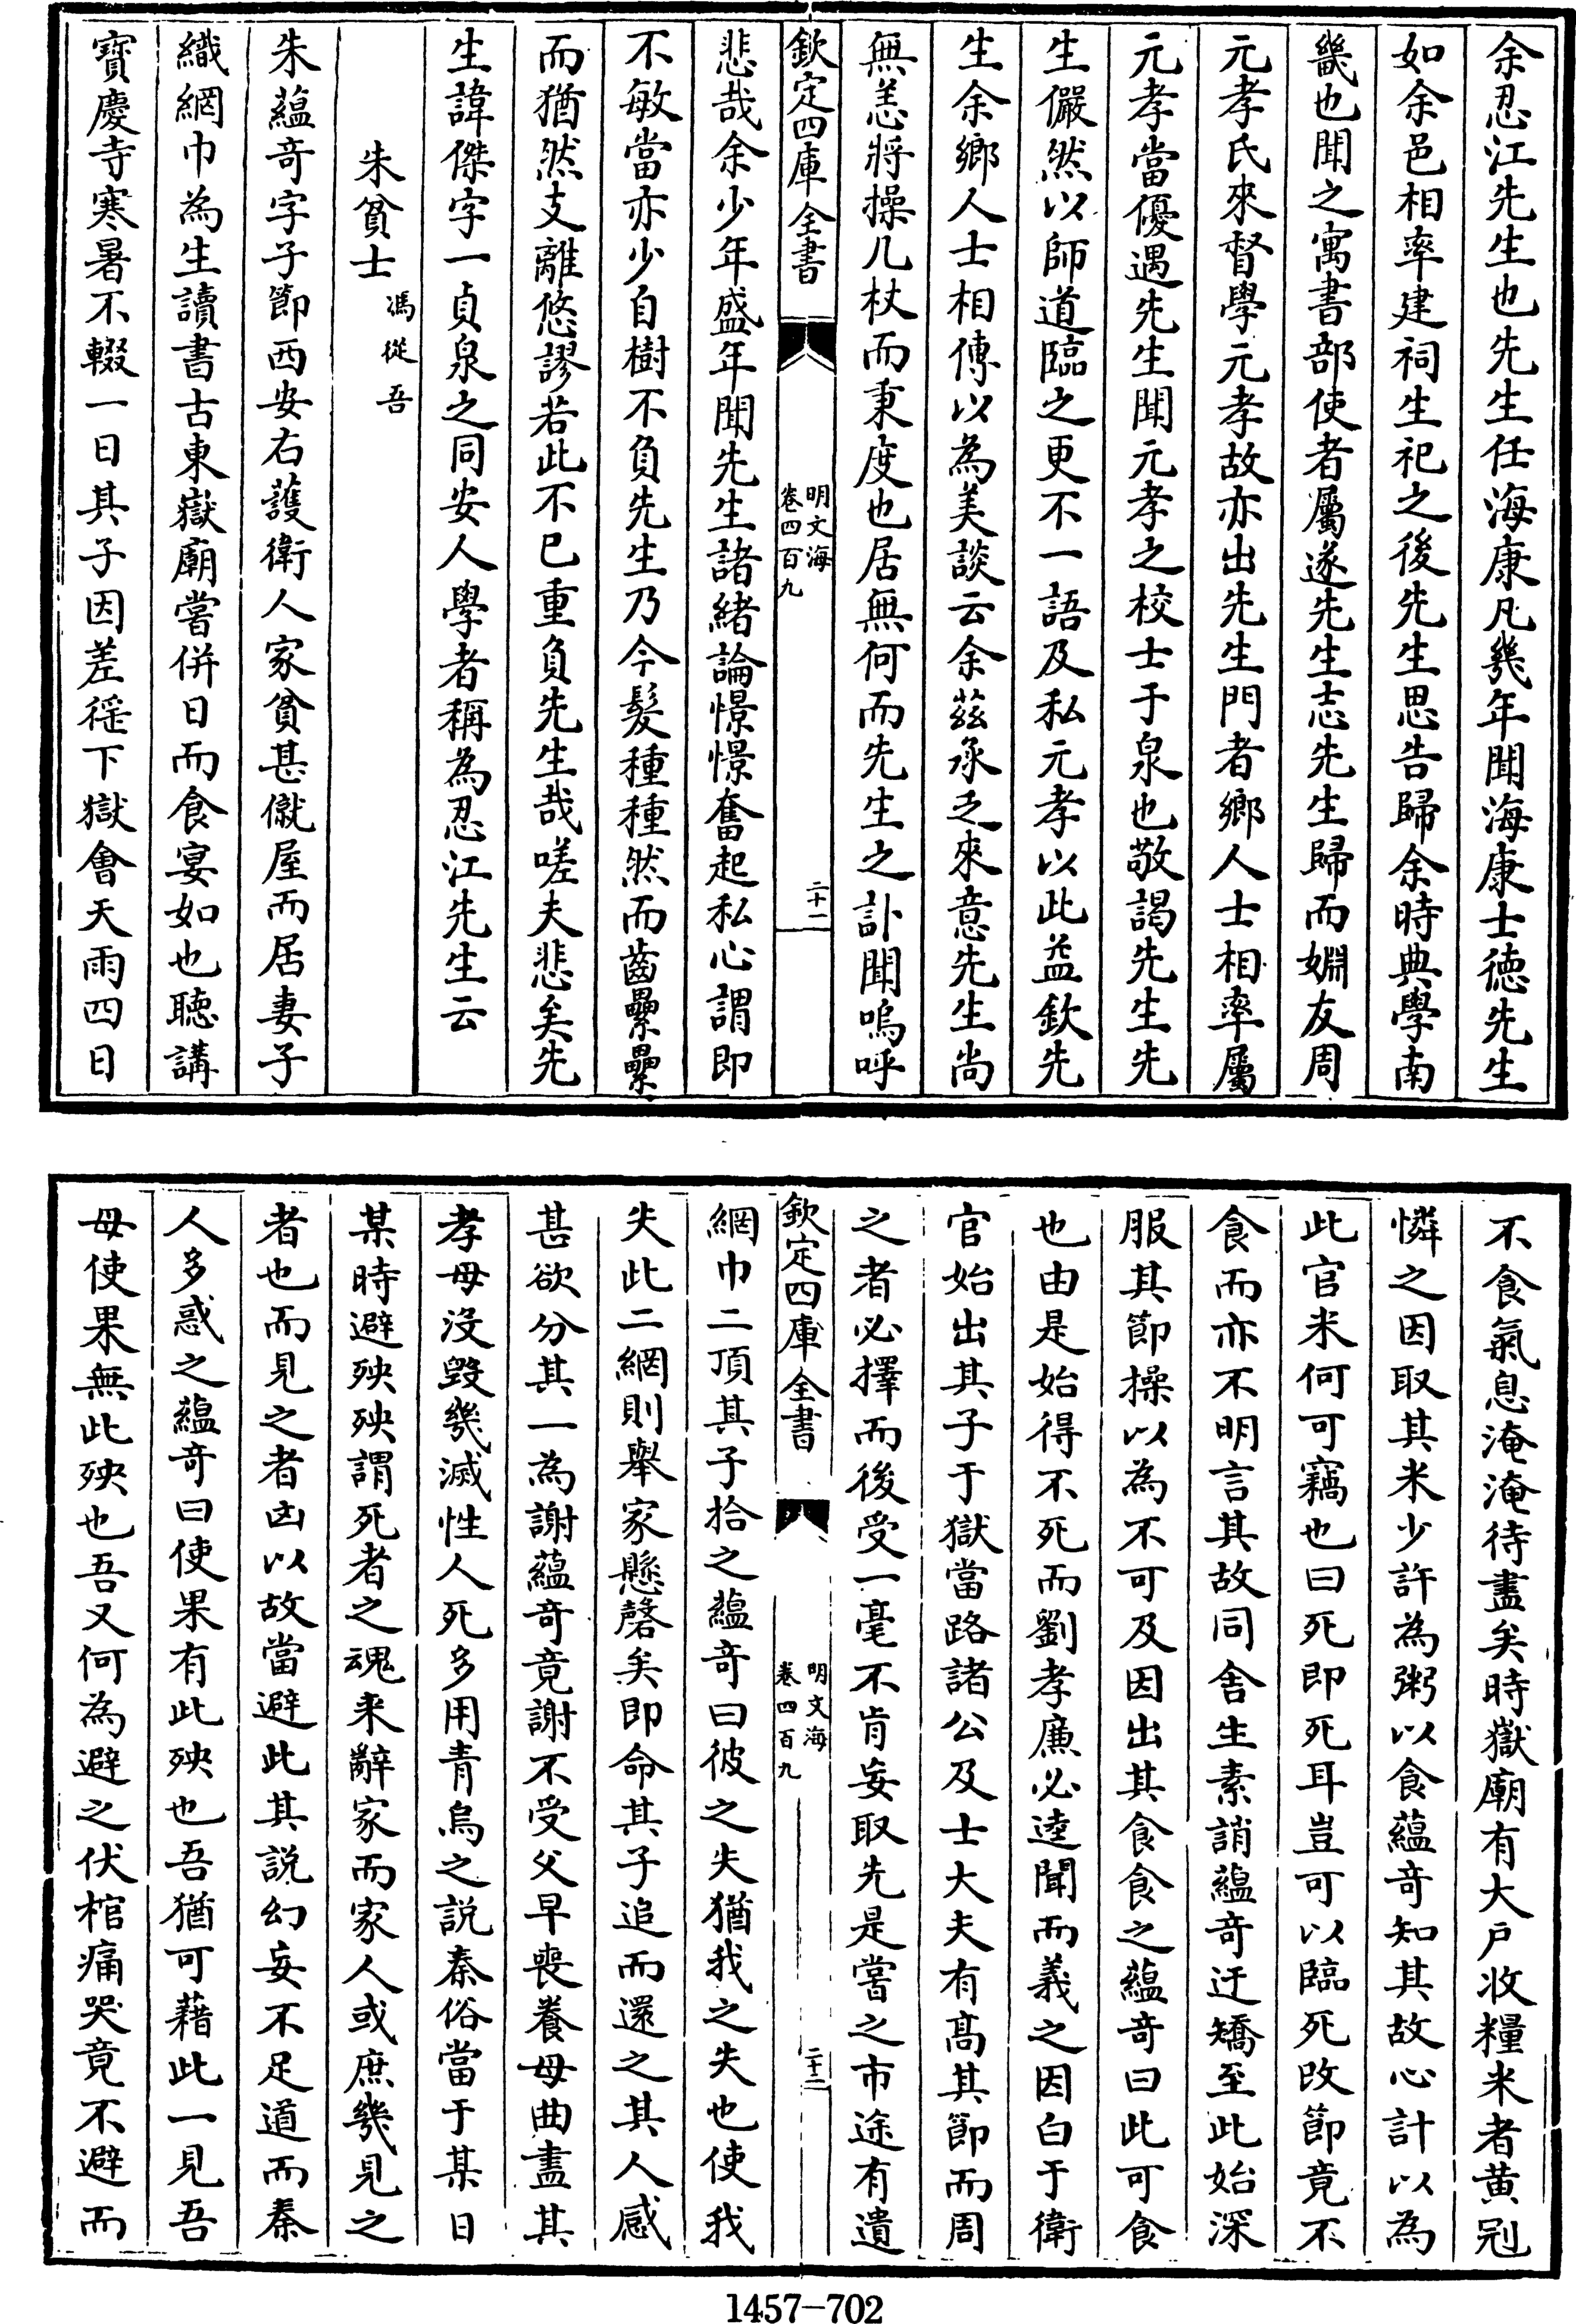 余忍江先生也先生任海康凡幾年聞海康士徳先生
如余邑相率建祠生祀之後先生思告歸余時典學南
畿也聞之寓書部使者屬遂先生志先生歸而婣友周
元孝氏來督學元孝故亦出先生門者鄉人士相率屬
元孝當優遇先生聞元孝之校士于泉也敬謁先生先
生儼然以師道臨之更不一語及私元孝以此益欽先
生余鄉人士相傳以為美談云余茲承乏來意先生尚
無恙將操几杖而秉度也居無何而先生之訃聞嗚呼
欽定四庫全書
明文海
卷四百九
二十一
悲哉余少年盛年聞先生諸緒論憬憬奮起私心謂即
不敏當亦少自樹不負先生乃今髮種種然而齒纍纍
而猶然支離悠謬若此不已重負先生哉嗟夫悲矣先
生諱傑字一貞泉之同安人學者稱為忍江先生云
朱貧士 馮從吾
朱蘊奇字子節西安右護衛人家貧甚僦屋而居妻子
織網巾為生讀書古東嶽廟嘗併日而食宴如也聽講
寶慶寺寒暑不輟一日其子因差徭下獄會天雨四日
不食氣息淹淹待盡矣時獄廟有大戶收糧米者黄冠
憐之因取其米少許為粥以食蘊奇知其故心計以為
此官米何可竊也曰死即死耳豈可以臨死改節竟不
食而亦不明言其故同舍生素誚蘊奇迂矯至此始深
服其節操以為不可及因出其食食之蘊奇曰此可食
也由是始得不死而劉孝廉必逵聞而義之因白于衛
官始出其子于獄當路諸公及士大夫有髙其節而周
之者必擇而後受一毫不肯妄取先是嘗之市途有遺
欽定四庫全書
明文海
卷四百九
二十二
網巾二頂其子拾之蘊奇曰彼之失猶我之失也使我
失此二網則舉家懸磬矣即命其子追而還之其人感
甚欲分其一為謝蘊奇竟謝不受父早喪養母曲盡其
孝母没毀幾滅性人死多用青烏之説秦俗當于某日
某時避殃殃謂死者之魂来辭家而家人或庶幾見之
者也而見之者凶以故當避此其説幻妄不足道而秦
人多惑之蘊奇曰使果有此殃也吾猶可藉此一見吾
母使果無此殃也吾又何為避之伏棺痛哭竟不避而
1457-702